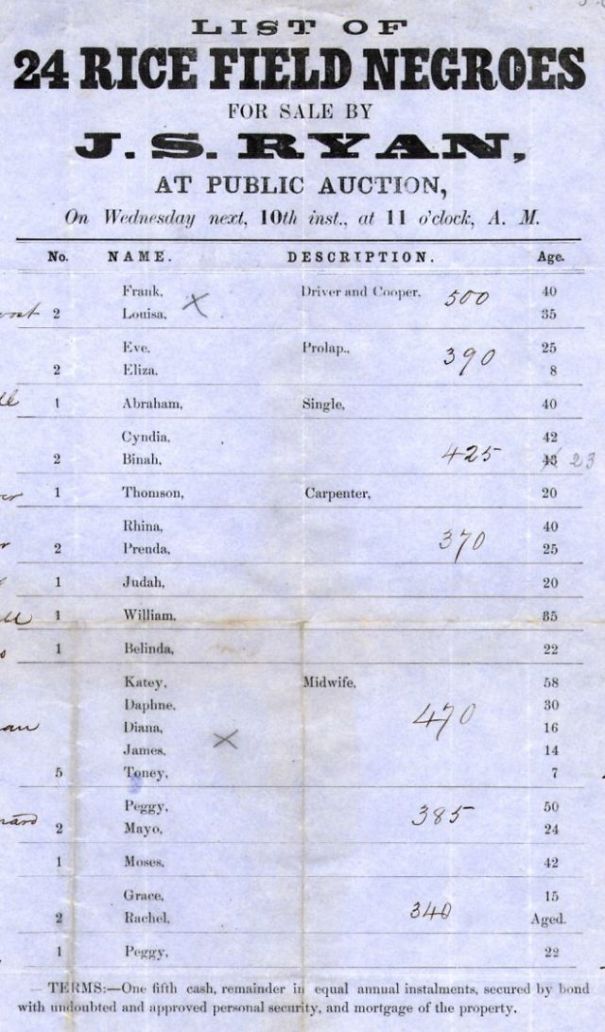 LIST OF
24 RICE FIELD NEGROES
FOR SALE BY
J. S. RYAN,
AT PUBLIC AUCTION,
On Wednesday next, 10th inst., at 11 o'clock, A. M.
No. NAME. DESCRIPTION. Age.
Frank, Driver and Cooper, 500 40
2 Louisa, X 35
Eve, Prolap., 390 25
2 Eliza, 8
1 Abraham, Single, 40
Cyndia, 42
2 Binah, 425 23
1 Thomson, Carpenter, 20
Rhina, 40
2 Prenda, 370 25
1 Judah, 20
1 William, 35
1 Belinda, 22
Katey, Midwife, 58
Daphne, 470 30
Diana, 16
James, X 14
5 Toney, 7
Peggy, 385 50
2 Mayo, 24
1 Moses, 42
Grace, 15
2 Rachel, 340 Aged.
1 Peggy, 22
TERMS:—One fifth cash, remainder in equal annual instalments, secured by bond
with undoubted and approved personal security, and mortgage of the property.